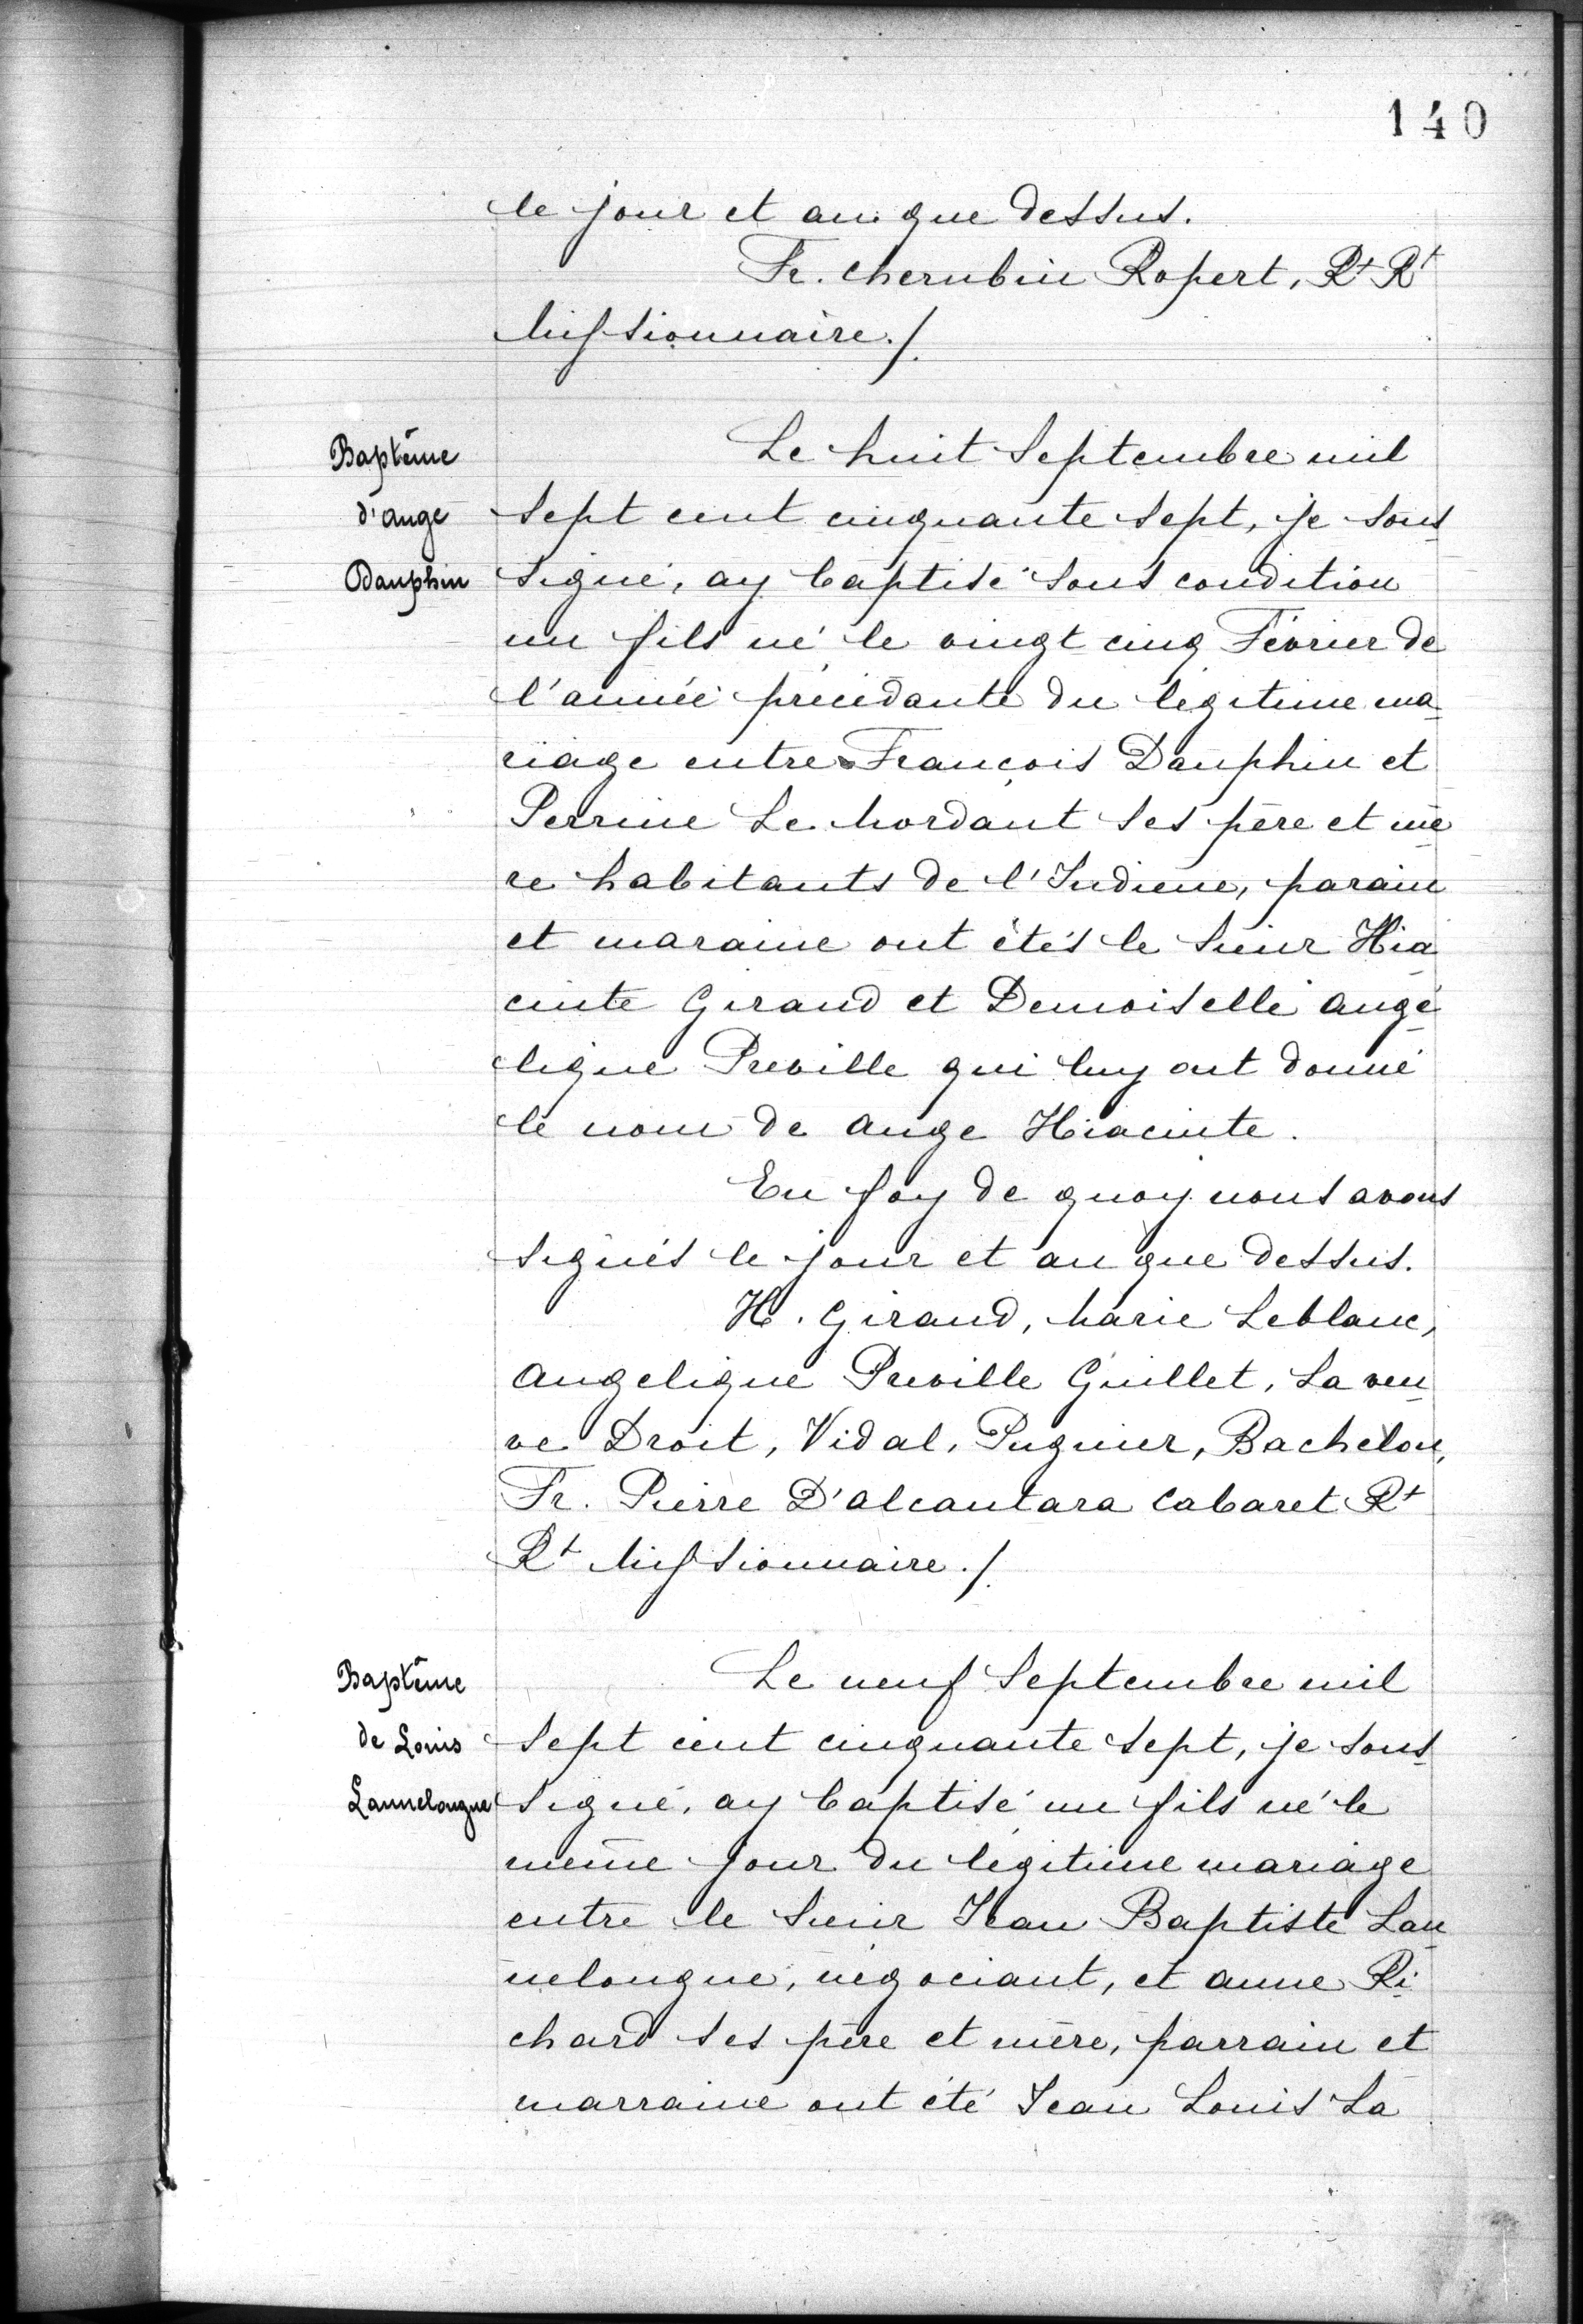 140
le jour et an que dessus.
Fr. Cherubin Ropert, Rt Rt
Missionnaire./.
Baptême
d'ange
Dauphin
Le huit Septembre mil
sept cent cinquante sept, je sous
signé, ay baptisé sous condition
un fils né le vingt cinq Février de
l'année précédante du légitime ma-
riage entre François Dauphin et
Perrine Le Mordant ses père et mè
re habitants de l'Indiene, parain
et maraine ont étés le Sieur Hia
cinte Giraud et Demoiselle Angé
lique Preville qui luy ont donné
le nom de Ange Hiacinte.
En foy de quoy nous avons
signés le jour et an que dessus.
H. Giraud, Marie Leblanc,
Angelique Preville Guillet, La veu
ve Droit, Vidal, Pugnier, Bachelou,
Fr. Pierre D'alcantara Cabaret Rt
Rt Missionnaire./.
Baptême
de Louis
Lannelongue
Le neuf Septembre mil
sept cent cinquante sept, je sous
signé, ay baptisé un fils né le
même jour du légitime mariage
entre le Sieur Jean Baptiste Lan
nelongue, négociant, et Anne Ri
chard ses père et mère, parrain et
marraine ont été Jean Louis La